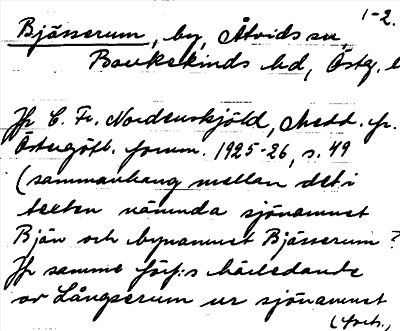 1-2.
Bjässerum, by, Åtvids sn,
Bankekinds hd, Östg. l
Jfr C. Fr. Nordenskjöld, Medd. fr.
Östergötl. fornm. 1925-26, s. 49
(sammanhang mellan det i
texten nämnda sjönamnet
Bjän och bynamnet Bjässerum?
Jfr samme förf:s härledande
av Långserum ur sjönamnet
(forts.,